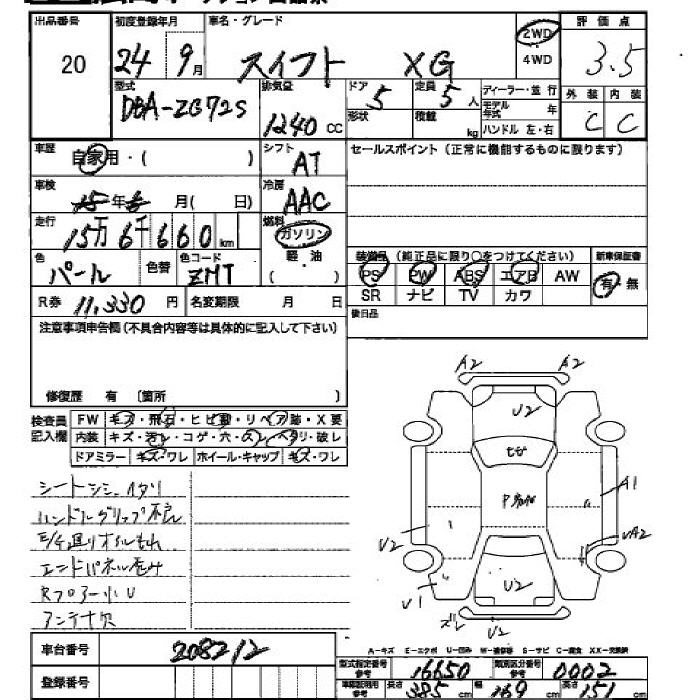 出品番号 初度登録年月 車名・グレード 評価点
20 24年 9月 スイフト XG 2WD 4WD 3.5
型式 排気量 ドア 定員 ディーラー・並行 外装 内装
DBA-ZG72S 1240 cc 5 5人 モデル年式 年 C C
形状 積載 kg ハンドル 左・右
車歴 自家用・( ) シフト AT セールスポイント(正常に機能するものに限ります)
車検 年 月( 日) 冷房 AAC
走行 15万6千660km 燃料 ガソリン
軽油 ( )
色 パール 色替 色コード ZMT
装備品(純正品に限り○をつけてください) 新車保証書
PS PW ABS エアB AW 有・無
SR ナビ TV カワ
R券 11,330円 名変期限 月 日 後日品
注意事項申告欄(不具合内容等は具体的に記入して下さい)
修復歴 有 〔箇所 〕
検査員記入欄 FW キズ・飛石・ヒビ・リペア跡・X要
内装 キズ・汚レ・コゲ・穴・スレ・ヘタリ・破レ
ドアミラー キズ・ワレ ホイール・キャップ キズ・ワレ
ハンドルグリップ不良
エンドパネル歪み
アンテナ欠
A2 A2
U2
A1
U2 UA2
U1 U2
ズレ U2
A-キズ E-エクボ U-凹み W-補修跡 S-サビ C-腐食 XX-交換済
車台番号 208212
登録番号
型式指定番号 参考 16650 類別区分番号 参考 0002
車体証明用 参考 長さ 385cm 幅 169cm 高さ 151cm